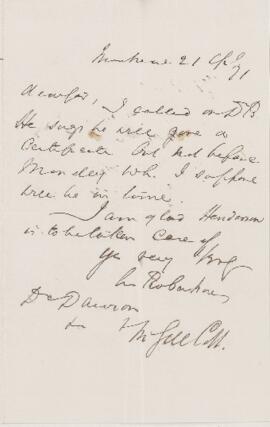 21 Apl /71
Dear Sir, I called on Dr B
He says he will give a
Certificate but not before
Monday wh. I suppose
will be in time.
I am glad Henderson
is to be taken care of
Yrs very
Robertson
Dr Dawson
McGill Coll.